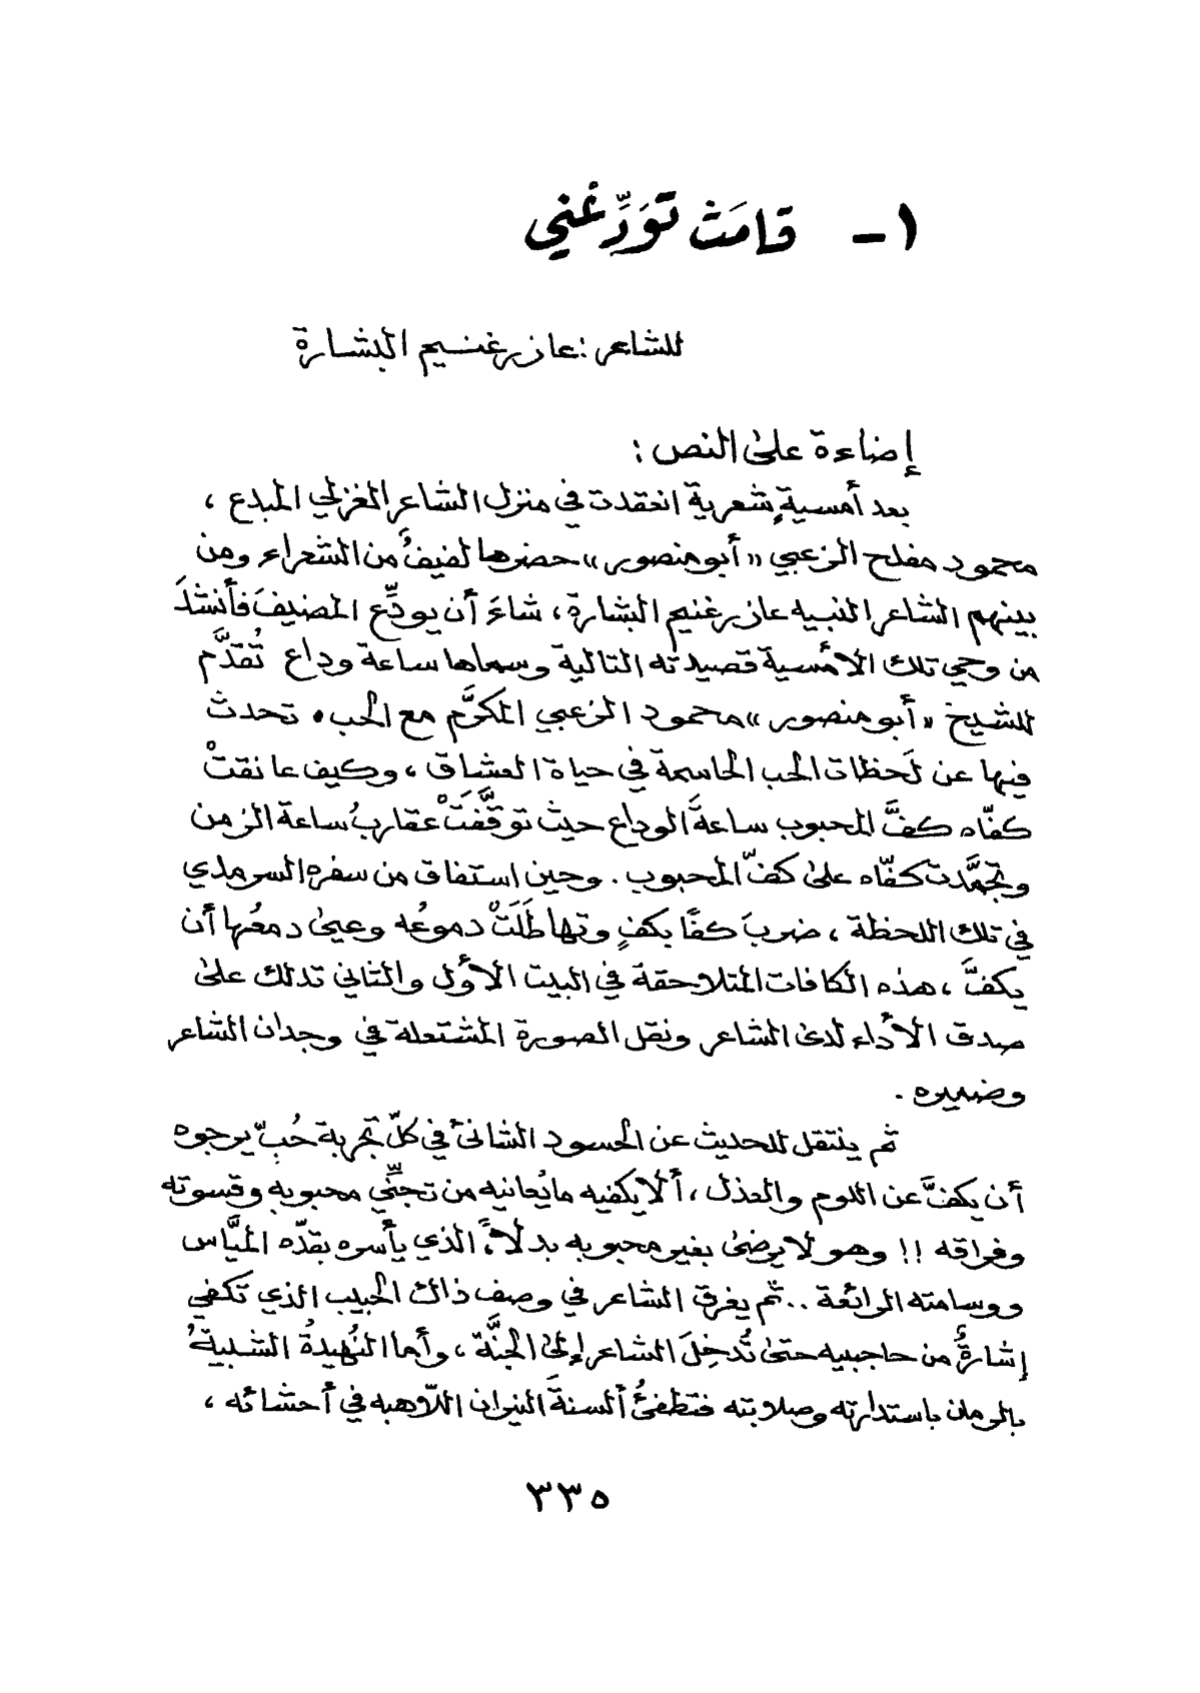 ١ - قامَتْ تَوَدِّعُني
للشاعر : عازر غنـيم البشـارة
إضاءة على النص :
بعد أمسيةٍ شعرية انعقدت في منزل الشاعر الغزلي المبدع ،
محمود مفلح الزعبي « أبو منصور » حضرها لفيفٌ من الشعراء ومن
بينهم الشاعر النبيه عازر غنيم البشارة ، شاءَ أن يودِّع المضيفَ فأنشدَ
من وحي تلك الأمسية قصيدته التالية وسماها ساعة وداع تُقدَّم
للشيخ « أبو منصور » محمود الزعبي المكرَّم مع الحب . تحدث
فيها عن لَحظات الحب الحاسمة في حياة العشاق ، وكيف عانقتْ
كفّاه كفَّ المحبوب ساعةَ الوداع حيث توقَّفَتْ عقاربُ ساعة الزمن
وتجمَّدت كفّاه على كفّ المحبوب . وحين استفاق من سفره السرمدي
في تلك اللحظة ، ضربَ كفًا بكفٍ وتهاطَلَتْ دموعُه وعيىٰ دمعُها أن
يكفَّ ، هذه الكافات المتلاحقة في البيت الأول والثاني تدلك على
صدق الأداء لدى الشاعر ونقل الصورة المشتعلة في وجدان الشاعر
وضميره .
ثم ينتقل للحديث عن الحسود الشانئ في كلّ تجربة حُبٍّ يرجوه
أن يكفَّ عن اللوم والعذل ، ألا يكفيه ما يُعانيه من تجنِّي محبوبه وقسوته
وفراقه !! وهو لا يرضىٰ بغير محبوبه بدلاً ، الذي يأسره بقدّه الميَّاس
ووسامته الرائعة .. ثم يغرق الشاعر في وصف ذاك الحبيب الذي تكفي
إشارةٌ من حاجبيه حتى تُدخِلَ الشاعر إلى الجنَّة ، وأما النُهيدةُ الشـبيةُ
بالرمان باستدارته وصلابته فتطفئُ ألسنةَ النيران اللّاهبه في أحشائه ،
٣٣٥